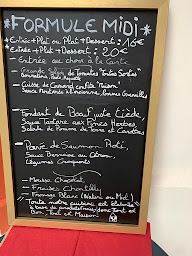 * FORMULE MiDi *
* Entrée + Plat ou Plat + Dessert : 16€
* Entrée + Plat + Dessert : 20€
Entrée au choix à la Carte
Grande Salade de Tomates Toutes Sortes
Cuisse de Canard
Fondant de Boeuf juste tiède,
Sauce Tartare aux Fines Herbes,
Salade de Pommes de Terre et Carottes
Pavé de Saumon Rôti
Sauce Bernaise au Citron,
Légumes Croquants
- Mousse Chocolat
- Fraises Chantilly
- Fromage Blanc (Nature ou Miel)
Toute notre cuisine est élaborée
à base de produits frais, donc Tout est
Bon, Tout est Maison!